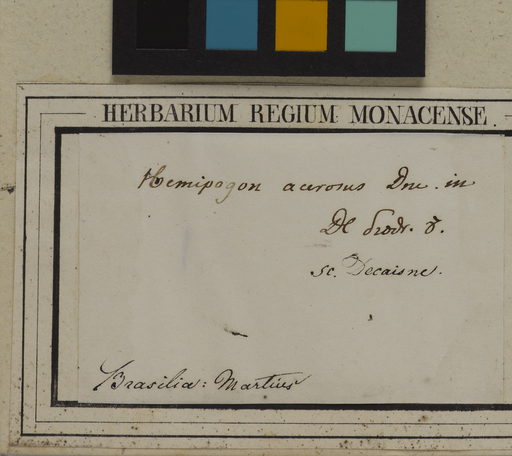 HERBARIUM REGIUM MONACENSE.
Hemipogon acerosus Dne. in
DC prodr. 8.
sc. Decaisne.
Brasilia: Martius